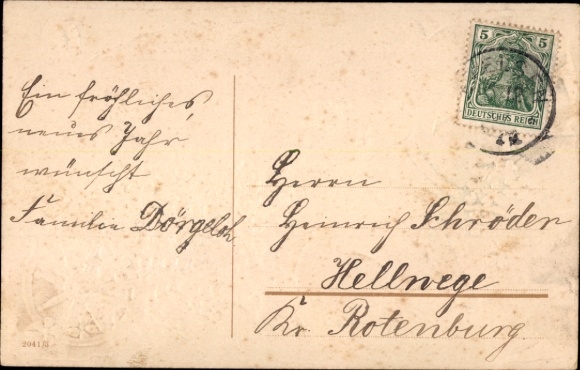 Ein fröhliches,
neues Jahr
wünscht
Familie Dörgeloh
5 5
DEUTSCHES REICH
Herrn
Heinrich Schröder
Hellwege
Kr. Rotenburg.
2041/II